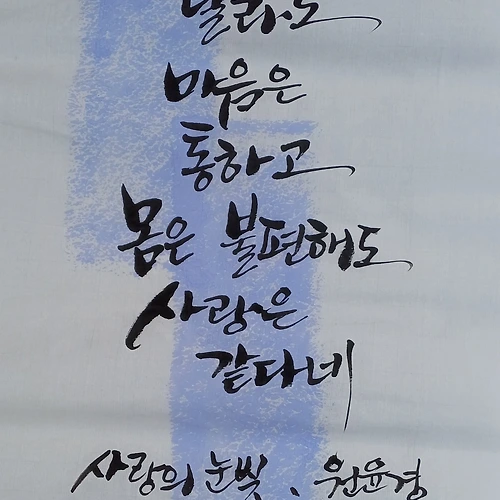 달라도
마음은
통하고
몸은 불편해도
사랑은
같다네
사랑의 눈빛, 원윤경